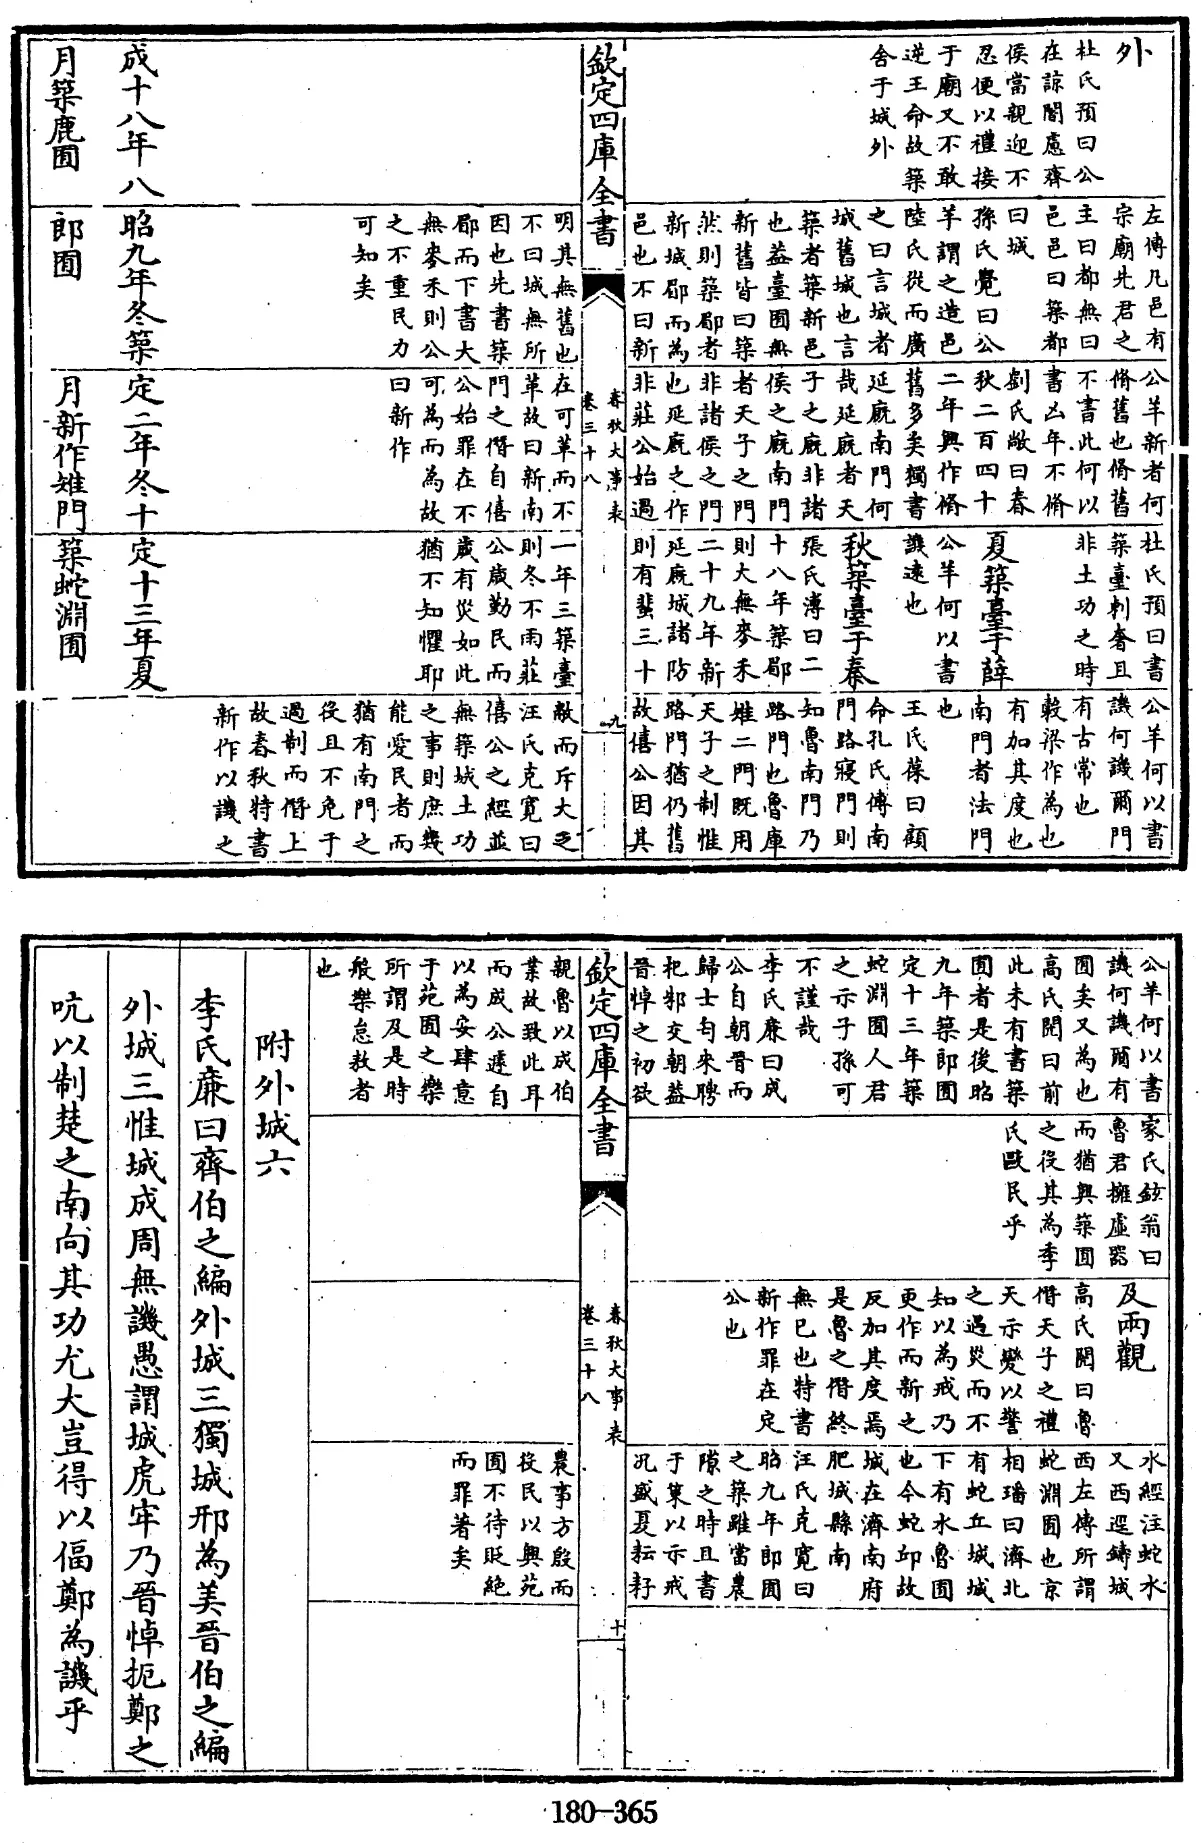 外
杜氏預曰公
在諒闇慮齊
侯當親迎不
忍便以禮接
于廟又不敢
逆王命故築
舍于城外
左傳凡邑有
宗廟先君之
主曰都無曰
邑邑曰築都
曰城
孫氏覺曰公
羊謂之造邑
陸氏從而廣
之曰言城者
城舊城也言
築者築新邑
也益臺囿無
新舊皆曰築
然則築郿者
新城郿而為
邑也不曰新
公羊新者何
脩舊也脩舊
不書此何以
書凶年不脩
劉氏敞曰春
秋二百四十
二年興作脩
舊多矣獨書
延廐南門何
哉延廐者天
子之廐非諸
侯之廐南門
者天子之門
非諸侯之門
也延廐之作
非莊公始過
杜氏預曰書
築臺刺奢且
非土功之時
夏築臺于薛
公羊何以書
譏遠也
秋築臺于秦
張氏溥曰二
十八年築郿
則大無麥禾
二十九年新
延廐城諸防
則有蜚三十
公羊何以書
譏何譏爾門
有古常也
穀梁作為也
有加其度也
南門者法門
也
王氏葆曰顧
命孔氏傳南
門路寢門則
知魯南門乃
路門也魯庫
雉二門既用
天子之制惟
路門猶仍舊
故僖公因其
欽定四庫全書
春秋大事表
卷三十八
九
明其無舊也
不曰城無所
因也先書築
郿而下書大
無麥禾則公
之不重民力
可知矣
在可革而不
革故曰新南
門之僭自僖
公始罪在不
可為而為故
曰新作
一年三築臺
則冬不雨莊
公歲勤民而
歲有災如此
猶不知懼耶
敝而斥大之
汪氏克寬曰
僖公之經並
無築城土功
之事則庶幾
能愛民者而
猶有南門之
役且不免于
過制而僭上
故春秋特書
新作以譏之
成十八年八
月築鹿囿
昭九年冬築
郎囿
定二年冬十
月新作雉門
定十三年夏
築蛇淵囿
公羊何以書
譏何譏爾有
囿矣又為也
高氏閌曰前
此未有書築
囿者是後昭
九年築郎囿
定十三年築
蛇淵囿人君
之示子孫可
不謹哉
李氏廉曰成
公自朝晉而
歸士匄來聘
杞邾交朝益
晉悼之初欲
家氏鉉翁曰
魯君擁虛器
而猶興築囿
之役其為季
氏敺民乎
及兩觀
高氏閌曰魯
僭天子之禮
天示變以警
之過災而不
知以為戒乃
更作而新之
反加其度焉
是魯之僭終
無已也特書
新作罪在定
公也
水經注蛇水
又西逕鑄城
西左傳所謂
蛇淵囿也京
相璠曰濟北
有蛇丘城城
下有水魯囿
也今蛇邱故
城在濟南府
肥城縣南
汪氏克寬曰
昭九年郎囿
之築雖當農
隙之時且書
于策以示戒
况盛夏耘耔
欽定四庫全書
春秋大事表
卷三十八
十
親魯以成伯
業故致此耳
而成公遽自
以為安肆意
于苑囿之樂
所謂及是時
般樂怠敖者
也
農事方殷而
役民以興苑
囿不待貶絶
而罪著矣
附外城六
李氏廉曰齊伯之編外城三獨城邢為美晉伯之編
外城三惟城成周無譏愚謂城虎牢乃晉悼扼鄭之
吭以制楚之南向其功尤大豈得以偪鄭為譏乎
180-365